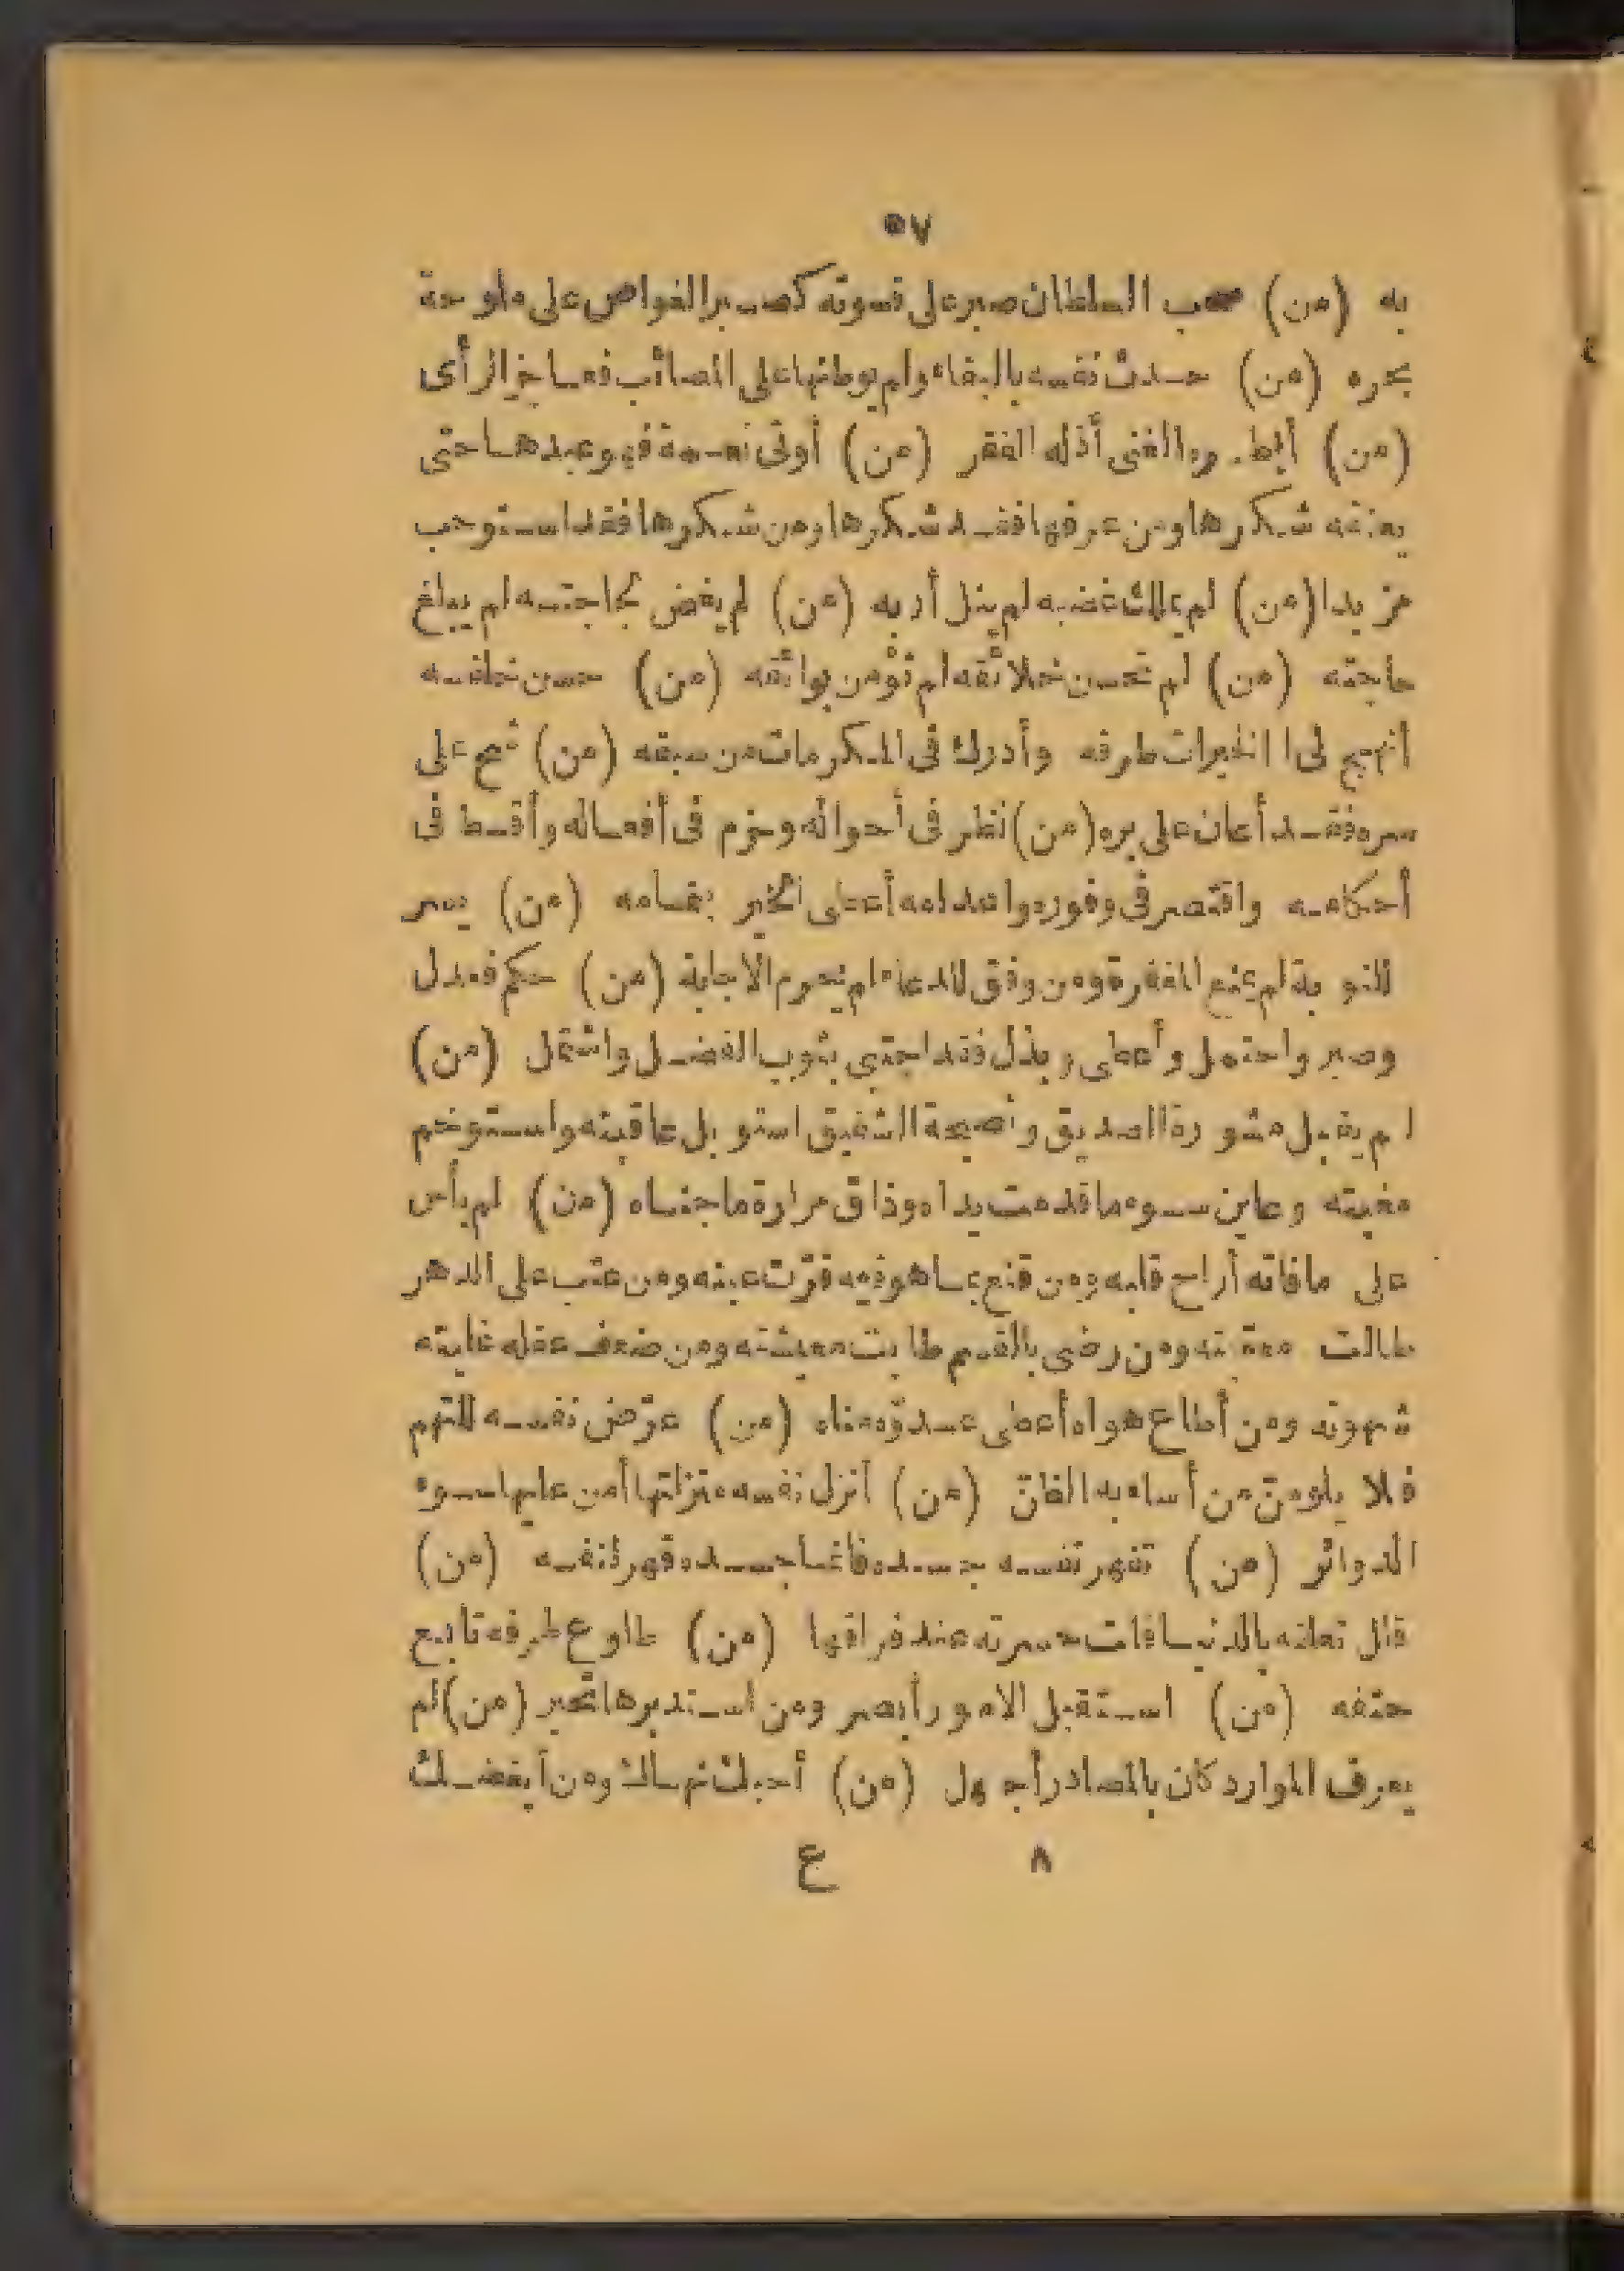 ٥٧
به (من) صحب السلطان صبر على قسوته كصبر الغواص على ملوحة
بحره (من) حدث نفسه بالبقاء ولم يوطنها على المصائب فعاجز الرأى
(من) أبطره الغنى أذله الفقر (من) أوتى نعمة فهو عبدها حتى
يعتقه شكرها ومن عرفها فقد شكرها ومن شكرها فقد استوجب
مزيدا (من) لم يملك غضبه لم ينل أربه (من) لم يغض بحاجته لم يبلغ
حاجته (من) لم تحسن خلائقه لم تؤمن بوائقه (من) حسن خلقه
انتهج لى الخيرات طرقه وأدرك فى المكرمات من سبقه (من) شح على
سره فقد أعان على بره (من) نظر فى أحواله وحزم فى أفعاله وأقسط فى
أحكامه واقتصر فى وفوره واعدامه أعطى الخير بتمامه (من) يسر
للتوبة لم يمنع المغفرة ومن وفق للدعاء لم يحرم الاجابة (من) حكم فعدل
وصبر واحتمل وأعطى وبذل فقد اجتبى بثوب الفضل واشتمل (من)
لم يقبل مشورة الصديق ونصيحة الشفيق استوبل عاقبته واستوخم
مغبته وعاين سوء ما قدمت يداه وذاق مرارة ما جناه (من) لم يأس
على ما فاته أراح قلبه ومن قنع بما هو فيه قرّت عينه ومن عتب على الدهر
طالت معتبته ومن رضى بالقسم طابت معيشته ومن ضعف عقله غلبته
شهوته ومن أطاع هواه أعطى عدوّه مناه (من) عرّض نفسه للتهم
فلا يلومنّ من أساء به الظنّ (من) أنزل نفسه منزلتها أمن عليها سوء
الدوائر (من) تقهر نفسه جسده فانما جسده قهر لنفسه (من)
قل تعلقه بالدنيا قلت حسرته عند فراقها (من) طاوع طرفه تابع
حتفه (من) استقبل الامور أبصر ومن استدبرها تحير (من) لم
يعرف الموارد كان بالمصادر أجهل (من) أحبك نهاك ومن أبغضك
٨ ع